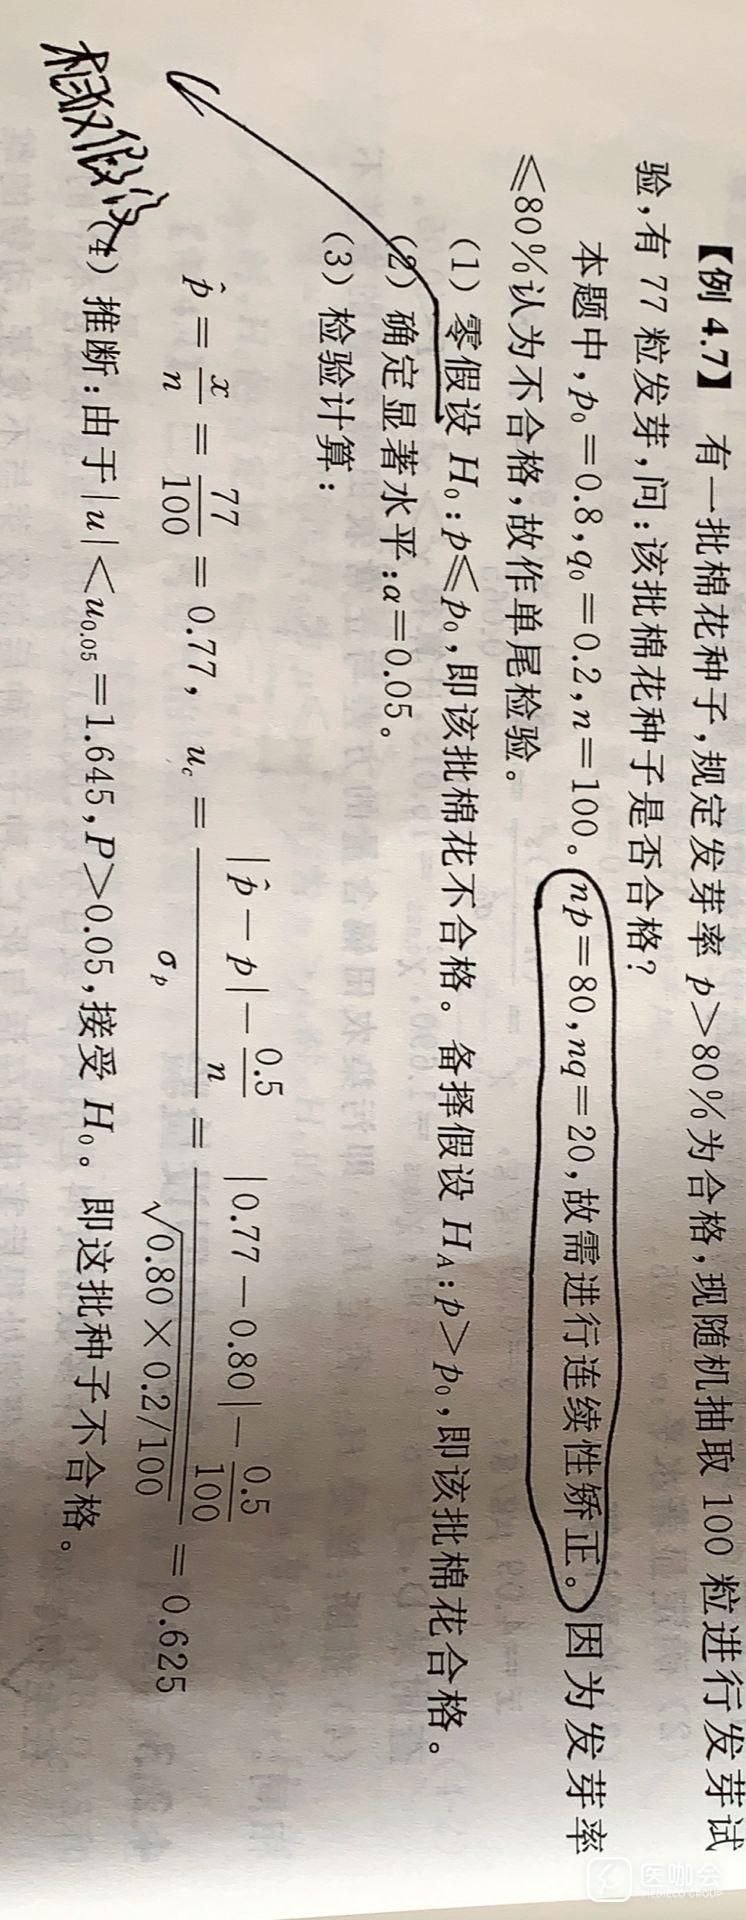 【例 4.7】 有一批棉花种子,规定发芽率 p>80%为合格,现随机抽取 100 粒进行发芽试
验,有 77 粒发芽,问:该批棉花种子是否合格?
本题中,p₀=0.8,q₀=0.2,n=100。np=80,nq=20,故需进行连续性矫正。因为发芽率
≤80%认为不合格,故作单尾检验。
(1) 零假设 H₀:p≤p₀,即该批棉花不合格。备择假设 H_A:p>p₀,即该批棉花合格。
(2) 确定显著水平:α=0.05。
(3) 检验计算:
p̂ = x/n = 77/100 = 0.77, u_c = (|p̂-p|-0.5/n)/σ_p = (|0.77-0.80|-0.5/100)/√(0.80×0.2/100) = 0.625
(4) 推断:由于|u|<u₀.₀₅=1.645,P>0.05,接受 H₀。即这批种子不合格。
假设
医咖会
MEDIECO GROUP